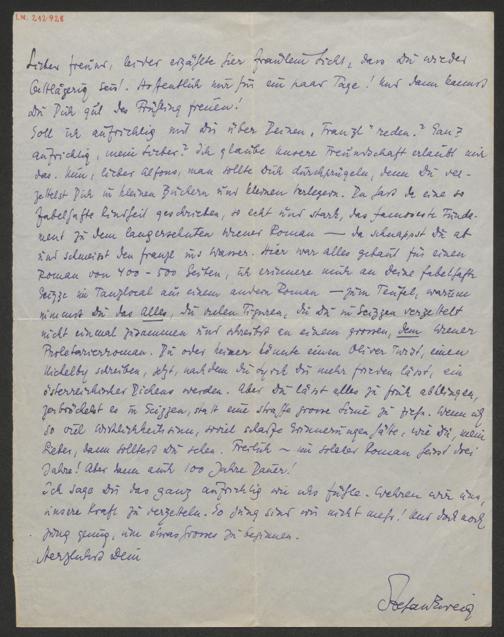 I.N. 212.928
Lieber Freund, leider erzählte hier Fräulein Licht, dass Du wieder
bettlägerig seist. Hoffentlich nur für ein paar Tage! Und dann kannst
Du Dich gut des Frühling freuen!
Soll ich aufrichtig mit Dir über Deinen „Franzl“ reden? Ganz
aufrichtig, mein Lieber? Ich glaube unsere Freundschaft erlaubt mir
das. Nun, lieber Alfons, man sollte Dich durchprügeln, denn Du ver-
zettelst Dich in kleinen Büchern und kleinen Verlegern. Da hast Du eine so
fabelhafte Kindheit geschrieben, so echt und stark, das famoseste Funda-
ment zu dem langersehnten Wiener Roman — da schnappst Du ab
und schmeisst den Franzl ins Wasser. Hier war alles gebaut für einen
Roman von 400 - 500 Seiten, ich erinnere mich an Deine fabelhafte
Scizze im Tanzlocal aus einem andern Roman — zum Teufel, warum
nimmst Du das Alles, die vielen Figuren, die Du in Scizzen verzettelt
nicht einmal zusammen und schreibst an einem grossen, dem Wiener
Proletarierroman. Du oder keiner könnte einen Oliver Twist, einen
Nickelby schreiben, jetzt, nachdem die Lyrik Dir mehr Frieden lässt, ein
österreichischer Dickens werden. Aber Du lässt alles zu früh abklingen,
zerbröckelst es in Scizzen, statt eine straffe grosse Linie zu ziehn. Wenn ich
so viel Wirklichkeitssinn, soviel scharfe Erinnerungen hätte, wie Du, mein
Lieber, dann solltest Du sehen. Freilich — ein solcher Roman heisst drei
Jahre! Aber dann auch 100 Jahre Dauer!
Ich sage Dir das ganz aufrichtig wie ichs fühle. Wehren wir uns,
unsere Kraft zu verzetteln. So jung sind wir nicht mehr! Und doch noch
jung genug, um etwas Grosses zu beginnen.
Herzlichst Dein
Stefan Zweig